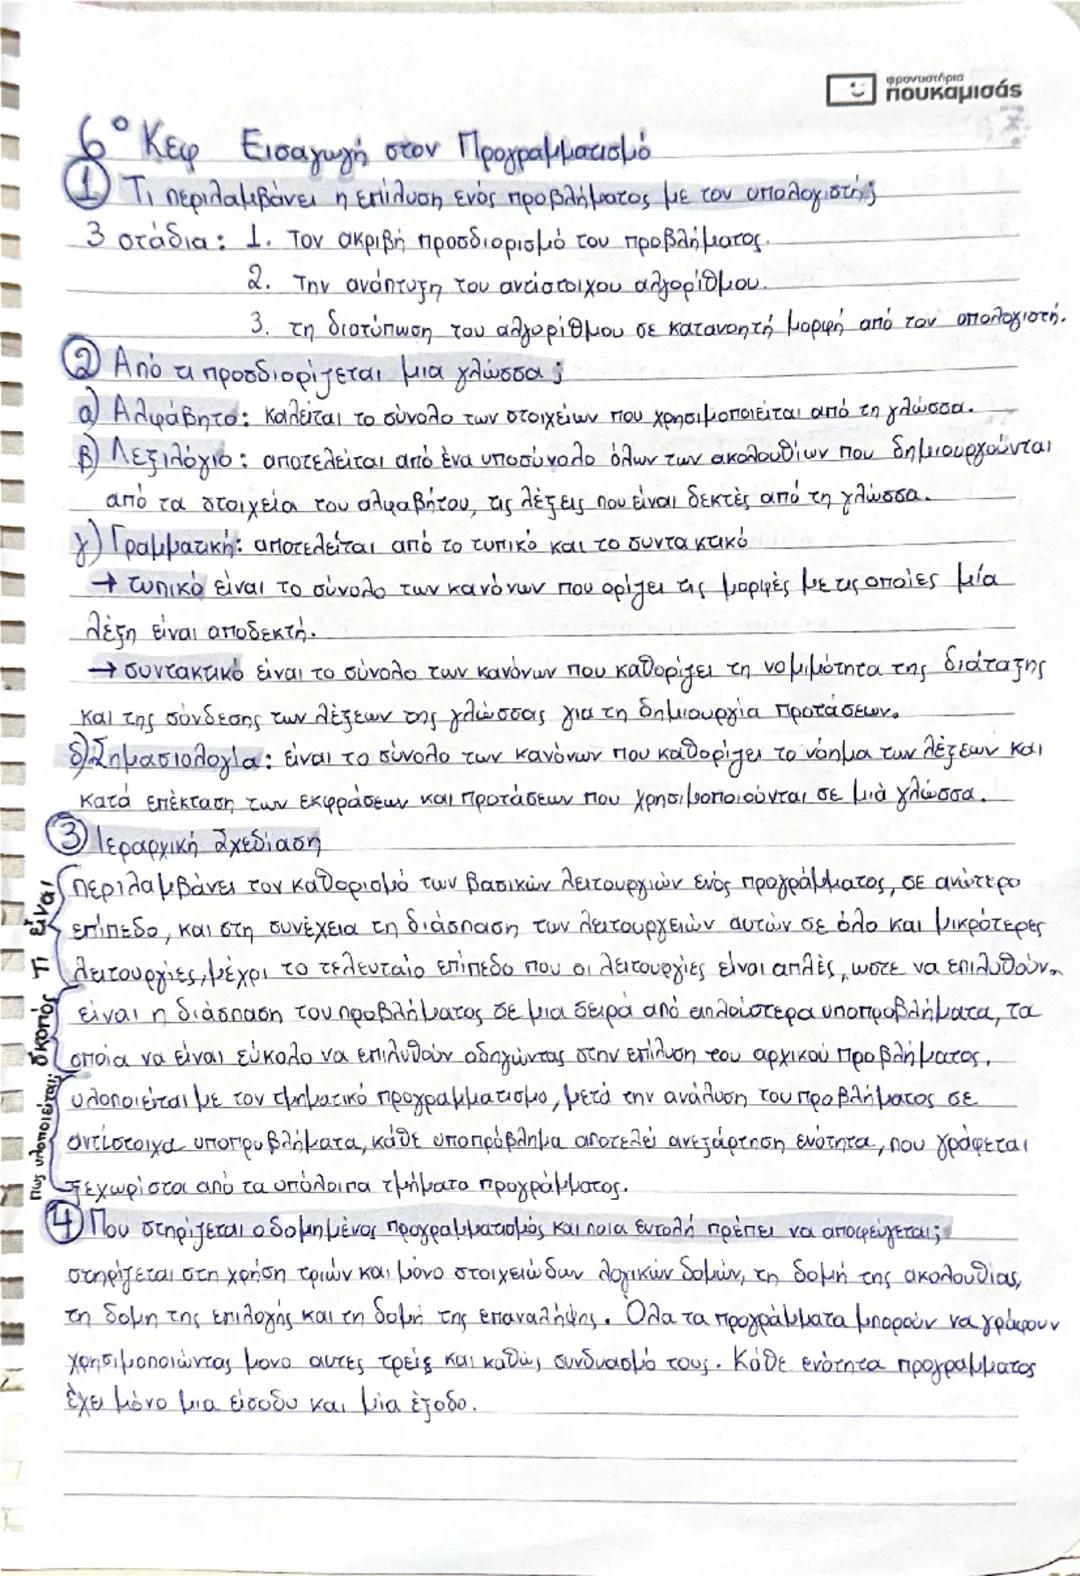 φροντιστήρια
πουκαμισάς
6° Κεφ Εισαγωγή στον Προγραμματισμό
① Τι περιλαμβάνει η επίλυση ενός προβλήματος με τον υπολογιστή;
3 στάδια: 1. Τον ακριβή προσδιορισμό του προβλήματος.
2. Την ανάπτυξη του αντίστοιχου αλγορίθμου.
3. τη διατύπωση του αλγορίθμου σε κατανοητή μορφή από τον υπολογιστή.
② Από τι προσδιορίζεται μια γλώσσα;
α) Αλφάβητο: καλείται το σύνολο των στοιχείων που χρησιμοποιείται από τη γλώσσα.
β) Λεξιλόγιο: αποτελείται από ένα υποσύνολο όλων των ακολουθιών που δημιουργούνται
από τα στοιχεία του αλφαβήτου, τις λέξεις που είναι δεκτές από τη γλώσσα.
γ) Γραμματική: αποτελείται από το τυπικό και το συντακτικό
→ τυπικό είναι το σύνολο των κανόνων που ορίζει τις μορφές με τις οποίες μία
λέξη είναι αποδεκτή.
→ συντακτικό είναι το σύνολο των κανόνων που καθορίζει τη νομιμότητα της διάταξης
και της σύνδεσης των λέξεων της γλώσσας για τη δημιουργία προτάσεων.
δ) Σημασιολογία: είναι το σύνολο των κανόνων που καθορίζει το νόημα των λέξεων και
κατά επέκταση των εκφράσεων και προτάσεων που χρησιμοποιούνται σε μιά γλώσσα.
③ Ιεραρχική Σχεδίαση
Τι είναι
περιλαμβάνει τον καθορισμό των βασικών λειτουργιών ενός προγράμματος, σε ανώτερο
επίπεδο, και στη συνέχεια τη διάσπαση των λειτουργειών αυτών σε όλο και μικρότερες
λειτουργίες, μέχρι το τελευταίο επίπεδο που οι λειτουργίες είναι απλές, ωστε να επιλυθούν.
σκοπός
είναι η διάσπαση του προβλήματος σε μια σειρά από απλούστερα υποπροβλήματα, τα
οποία να είναι εύκολο να επιλυθούν οδηγώντας στην επίλυση του αρχικού προβλήματος.
Πως υλοποιείται;
υλοποιείται με τον τμηματικό προγραμματισμο, μετά την ανάλυση του προβλήματος σε
αντίστοιχα υποπροβλήματα, κάθε υποπρόβλημα αποτελεί ανεξάρτηση ενότητα, που γράφεται
ξεχωριστα από τα υπόλοιπα τμήματα προγράμματος.
④ Που στηρίζεται ο δομημένος προγραμματισμός και ποια εντολή πρέπει να αποφεύγεται;
στηρίζεται στη χρήση τριών και μόνο στοιχειωδών λογικών δομών, τη δομή της ακολουθίας,
τη δομη της επιλογής και τη δομή της επανάληψης. Όλα τα προγράμματα μπορούν να γράφουν
χρησιμοποιώντας μονο αυτες τρεις και καθώς συνδυασμό τους. Κάθε ενότητα προγράμματος
έχει μόνο μια είσοδο και μία έξοδο.